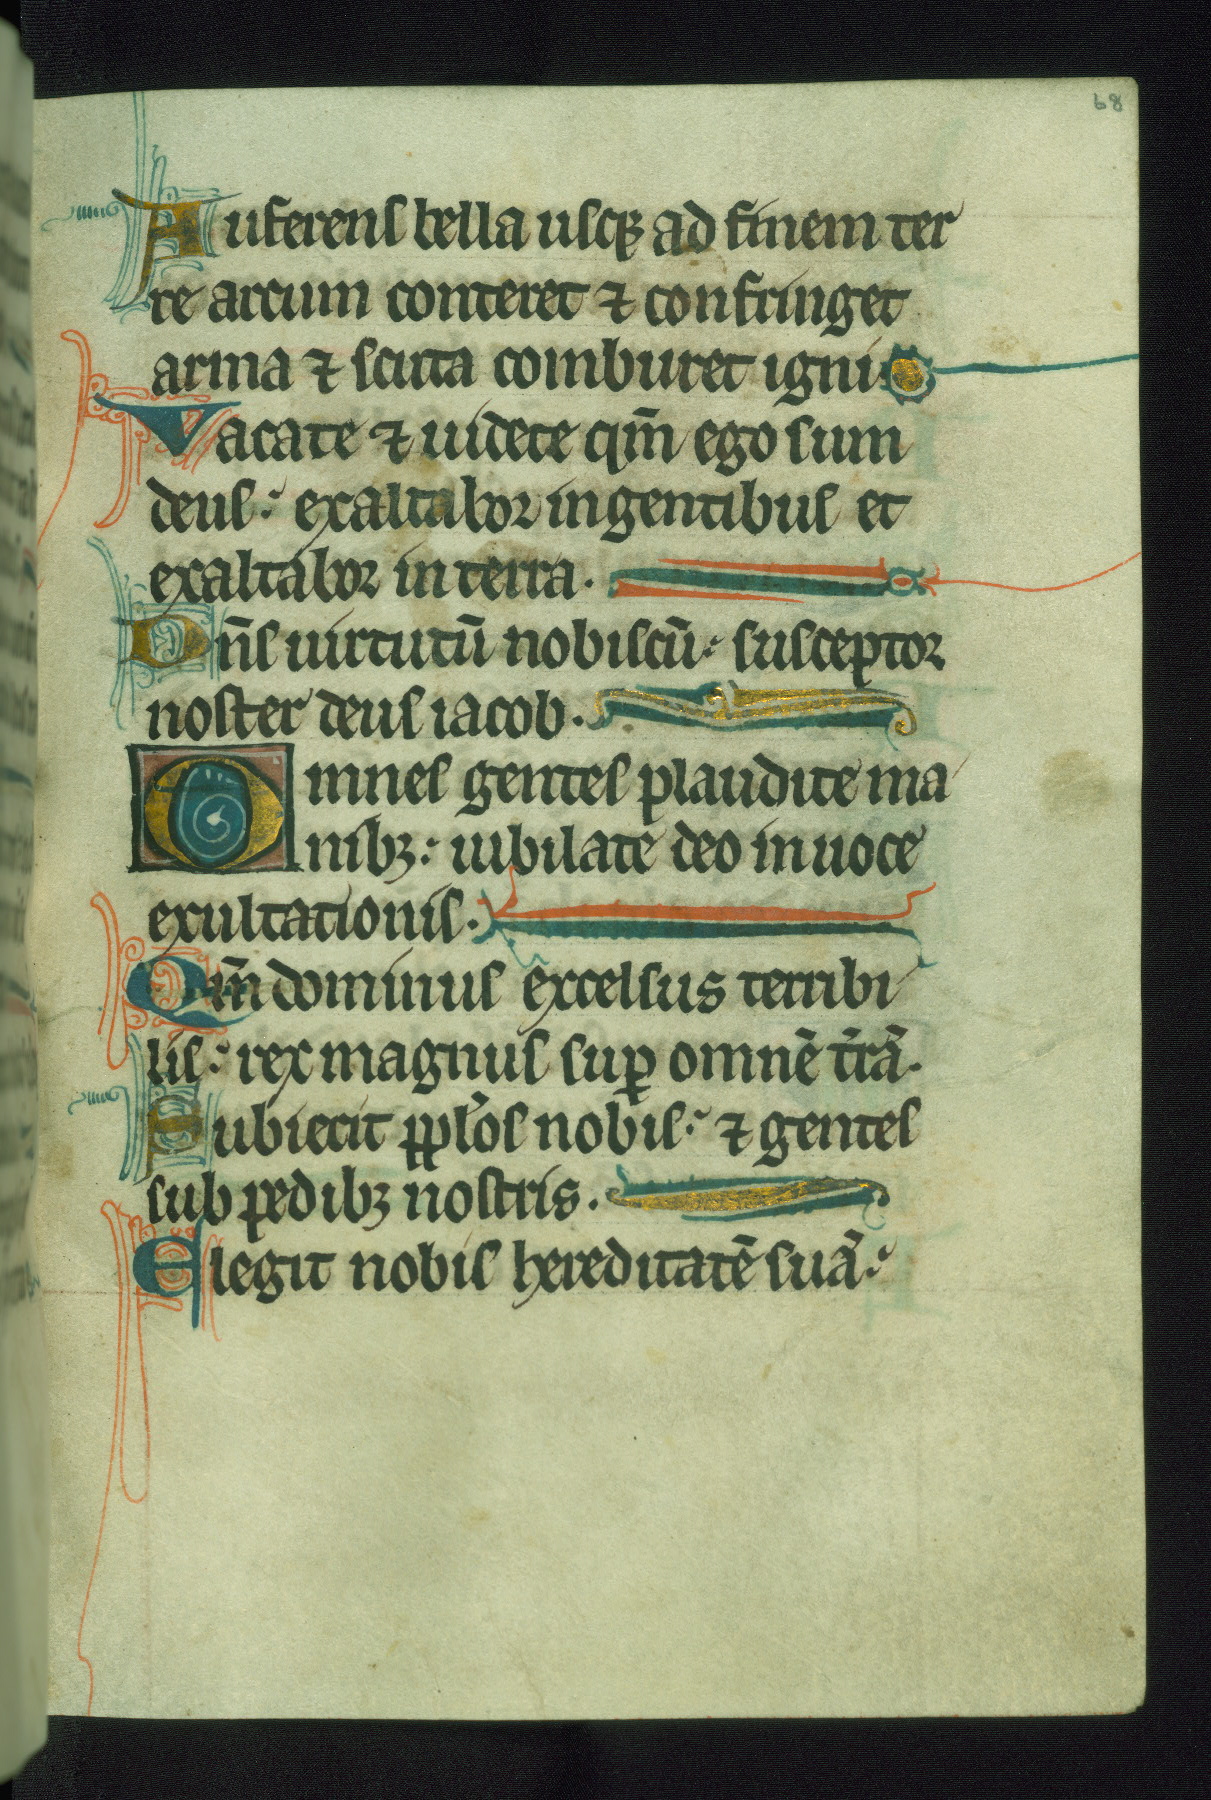 68
Auferens bella usq; ad finem ter
re arcum conteret ⁊ confringet
arma ⁊ scuta comburet igni
Vacate ⁊ uidete qm̄ ego sum
deus: exaltabor in gentibus et
exaltabor in terra.
Dn̄s uirtutū nobiscū: susceptor
noster deus iacob.
Omnes gentes plaudite ma
nibꝫ: iubilate deo in uoce
exultationis.
Qm̄ dominus excelsus terribi
lis: rex magnus suꝑ omnē t̄rā.
Subiecit pplo̓s nobis: ⁊ gentes
sub pedibꝫ nostris.
Elegit nobis hereditatē suā: